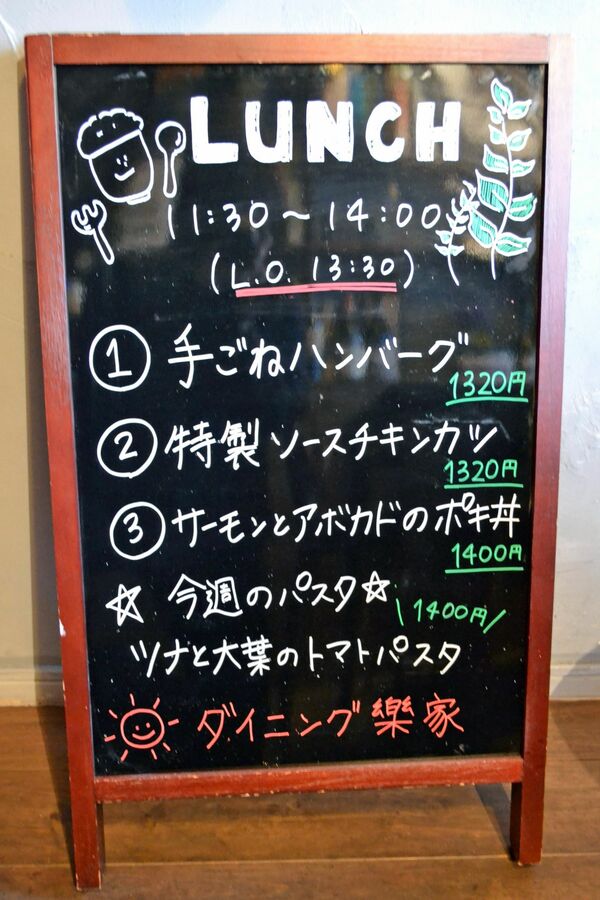 LUNCH
11:30～14:00
(L.O. 13:30)
① 手ごねハンバーグ
1320円
② 特製ソースチキンカツ
1320円
③ サーモンとアボカドのポキ丼
1400円
☆ 今週のパスタ☆
\1400円/
ツナと大葉のトマトパスタ
ダイニング樂家